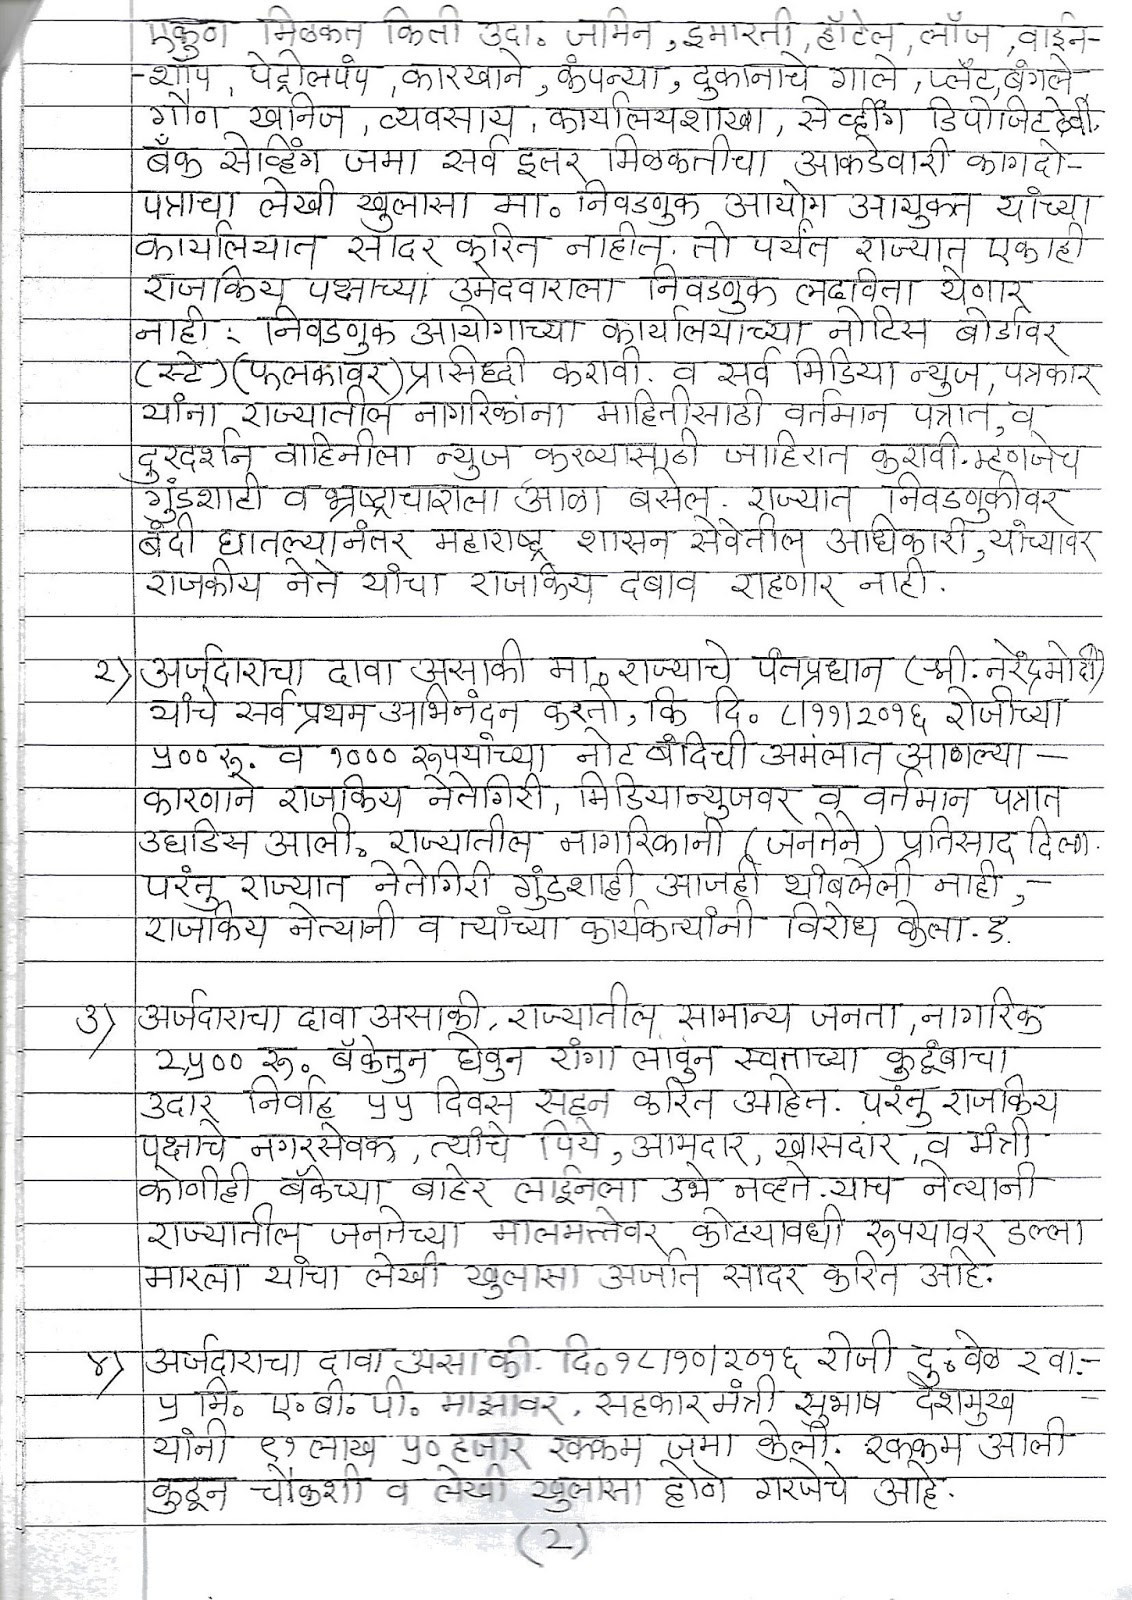 एकुण मिळकत किती उदा. जमिन, इमारती, हॉटेल, लॉज, वाईन-
-शॉप, पेट्रोलपंप, कारखाने, कंपन्या, दुकानाचे गाले, प्लॅट, बंगले
गौण खनिज, व्यवसाय, कार्यालयशाखा, सेव्हींग डिपोजिट ठेवी.
बँक सेव्हिंग जमा सर्व इतर मिळकतीचा आकडेवारी कागदो-
पत्राचा लेखी खुलासा मा. निवडणुक आयोग आयुक्त यांच्या
कार्यालयात सादर करित नाहीत. तो पर्यंत राज्यात एकाही
राजकिय पक्षाच्या उमेदवाराला निवडणुक लढविता येणार
नाही: निवडणुक आयोगाच्या कार्यालयाच्या नोटिस बोर्डावर
(स्टे) (फलकावर) प्रसिध्दी करावी. व सर्व मिडिया न्युज, पत्रकार
यांना राज्यातील नागरिकांना माहितीसाठी वर्तमान पत्रात, व
दुरदर्शन वाहिनीला न्युज करण्यासाठी जाहिरात करावी. म्हणजेच
गुंडशाही व भ्रष्ट्राचाराला आळा बसेल. राज्यात निवडणुकीवर
बंदी घातल्यानंतर महाराष्ट्र शासन सेवेतील अधिकारी, यांच्यावर
राजकीय नेते यांचा राजकिय दबाव राहणार नाही.
२) अर्जदाराचा दावा असाकी मा. राज्याचे पंतप्रधान (श्री. नरेंद्रमोदी)
यांचे सर्व प्रथम अभिनंदन करतो, कि दि. ८/११/२०१६ रोजीच्या
५०० रू. व १००० रूपयांच्या नोट बंदिची अमंलात आणल्या -
कारणाने राजकिय नेतेगिरी, मिडियान्युजवर व वर्तमान पत्रात
उघडिस आली. राज्यातील नागरिकानी (जनतेने) प्रतिसाद दिला.
परंतु राज्यात नेतेगिरी गुंडशाही आजही थांबलेली नाही, -
राजकिय नेत्यानी व त्यांच्या कार्यकर्त्यांनी विरोध केला. ह.
३) अर्जदाराचा दावा असाकी, राज्यातील सामान्य जनता, नागरिक
२५०० रू. बॅकेतुन घेवुन रांगा लावुन स्वताच्या कुटूंबाचा
उदार निर्वाह ५५ दिवस सहन करित आहेत. परंतु राजकिय
पक्षाचे नगरसेवक, त्यांचे पिये, आमदार, खासदार, व मंत्री
कोणीही बॅकेच्या बाहेर लाईनला उभे नव्हते. याच नेत्यानी
राज्यातील जनतेच्या मालमत्तेवर कोटयावधी रूपयावर डल्ला
मारला यांचा लेखी खुलासा अर्जात सादर करित आहे.
४) अर्जदाराचा दावा असा की. दि. १८/१०/२०१६ रोजी दु. वेळ २ वा.-
५ मि. ए. बी. पी. माझावर. सहकार मंत्री सुभाष देशमुख -
यांनी ९१ लाख ५० हजार रक्कम जमा केली. रक्कम आली
कुठून चौकशी व लेखी खुलासा होणे गरजेचे आहे.
(2)